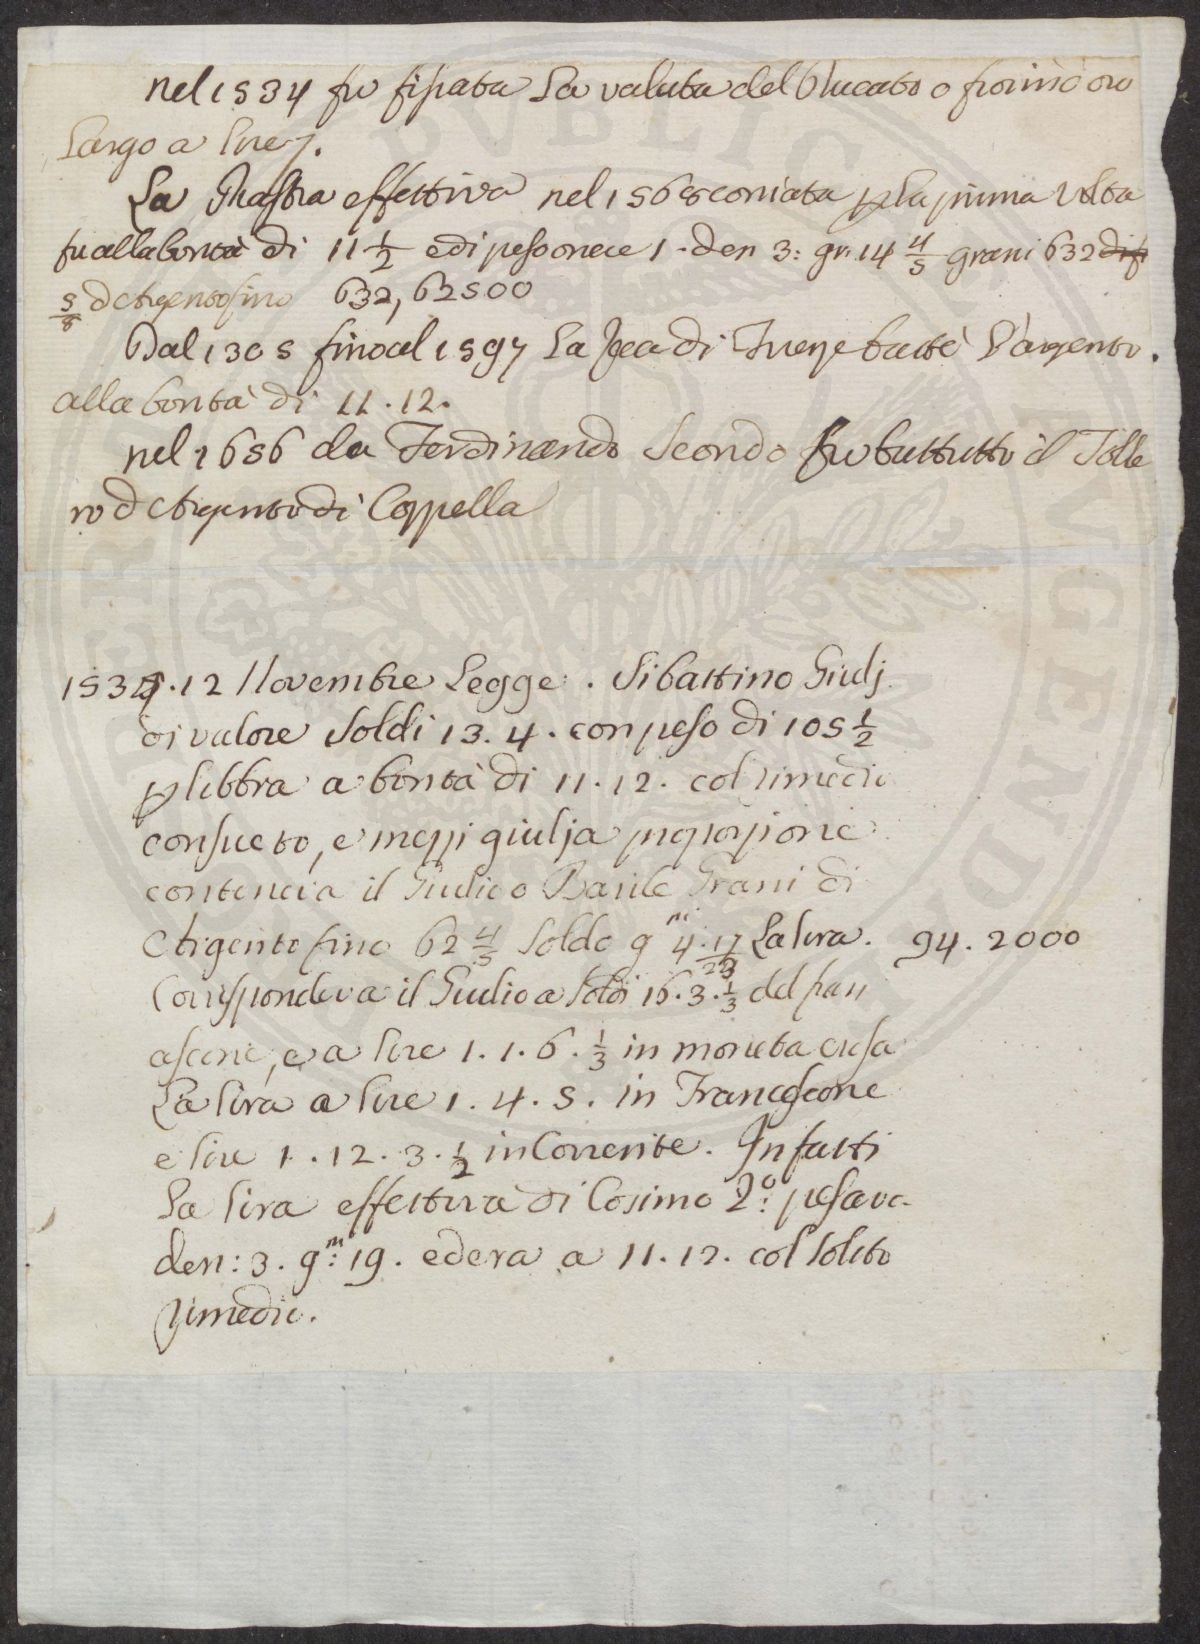 nel 1534 fu fissata La valuta del Ducato o fiorino oro
Largo a lire 7.
La Piastra effettiva nel 1568 coniata p La prima Volta
fu alla bontà di 11 1/2 e di peso once 1. den 3: gr. 14 4/5 grani 632 di fi
5/8 d'Argento fino 632, 62500
Dal 1305 fino al 1597 La Zecca di Firenze battè L'argento
alla bontà di 11.12.
nel 1656 da Ferdinando Secondo fu battutto il Talle
ro d'Argento di Coppella
1535.12 Novembre Legge. Si battino Giulj
di valore Soldi 13.4. con peso di 105 1/2
p libbra a bontà di 11.12. col rimedio
consueto, e mezzi giulja proporzione
conteneva il Giulio o Barile Grani di
Argento fino 62 4/5 Soldo g.ni 4.17/23 La lira. 94.2000
Corrispondeva il Giulio a Soldi 16.3.1/3 del fran
cescone, e a lire 1.1.6.1/3 in moneta erosa
La lira a lire 1.4.5. in Francescone
e lire 1.12.3.1/2 in Corrente. Infatti
La lira effettiva di Cosimo 2.o pesava
den: 3. g.ni: 19. ed era a 11.12. col solito
rimedio.